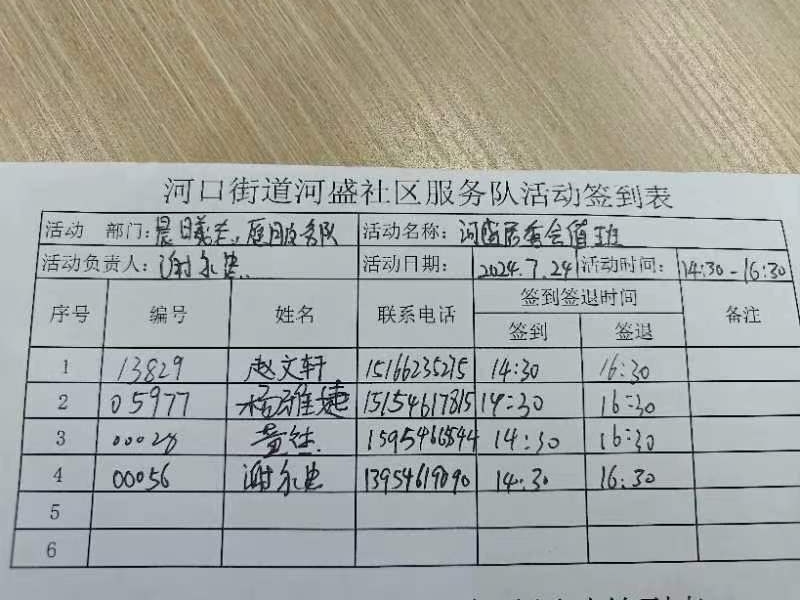 河口街道河盛社区服务队活动签到表
活动 部门: 晨曦志愿服务队 活动名称: 河盛居委会值班
活动负责人: 谢永忠 活动日期: 2024.7.24 活动时间: 14:30-16:30
序号 编号 姓名 联系电话 签到签退时间 备注
签到 签退
1 13829 赵文轩 15166235275 14:30 16:30
2 05977 杨雅婕 15154617815 14:30 16:30
3 00028 黄 14:30 16:30
4 00056 谢永忠 13954619090 14:30 16:30
5
6